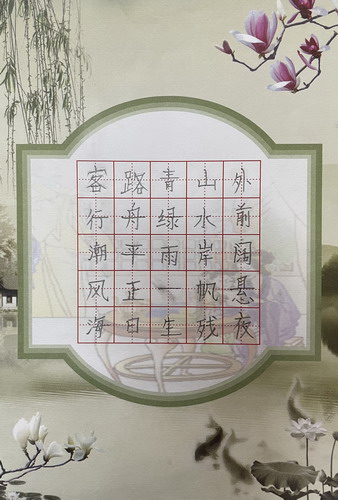 客路青山外
行舟绿水前
潮平雨岸阔
风正一帆悬
海日生残夜